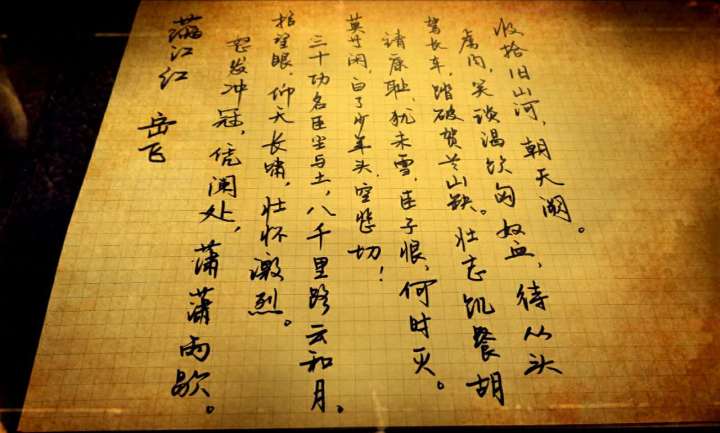 满江红
岳飞
怒发冲冠,凭阑处,萧萧雨歇。
抬望眼,仰天长啸,壮怀激烈。
三十功名臣尘与土,八千里路云和月。
莫等闲,白了少年头,空悲切!
靖康耻,犹未雪,臣子恨,何时灭。
驾长车,踏破贺兰山缺。壮志饥餐胡
虏肉,笑谈渴饮匈奴血,待从头
收拾旧山河,朝天阙。